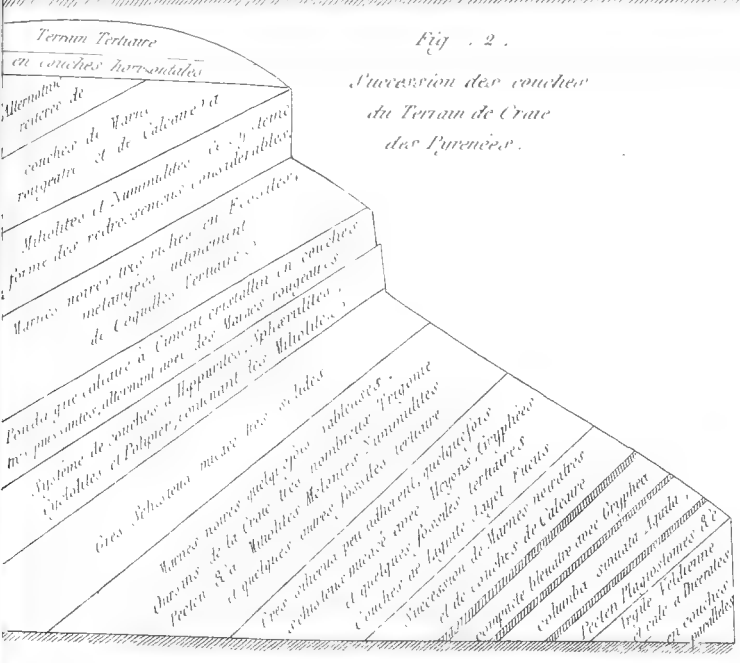 Fig . 2 .
Succession des couches
du Terrain de Craie
des Pyrenées .
Terrain Tertiaire
en couches horisontales
Alternative
reiterée de
couches de Marne
rougeatre et de Calcaire à
Miliolites et Nummulites Ce systeme
forme des redressemens considerables.
Marnes noires tres riches en Fossiles,
melangées intimement
de Coquilles Tertiaires,
que calcaire à Ciment cristallin en couches
tres puissantes, alternant avec des Marnes rougeatres
Système de couches à Hippurites, Sphærulites,
Cyclolites et Polypier, contenant les Miliolites,
Grès Schisteux micacé tres solides
Marnes noires quelquefois sableuses.
Oursins de la Craie tres nombreux Trigonie
Pecten &a Miliolites Melonies Nummulites
et quelques autres fossiles tertiaire
Grès schisteux peu adherent, quelquefois
schisteux micacé avec Alcyons, Gryphées
et quelques fossiles tertiaires
Couches de Lignite Jayet Fucus
Succession de Marnes noiratres
et de couches de Calcaire
compacte bleuatre avec Gryphea
columba sinuata Aquila,
Pecten Plagiostomes &a
Argile Veldienne
et calc. à Dicerates
en couches
paralleles